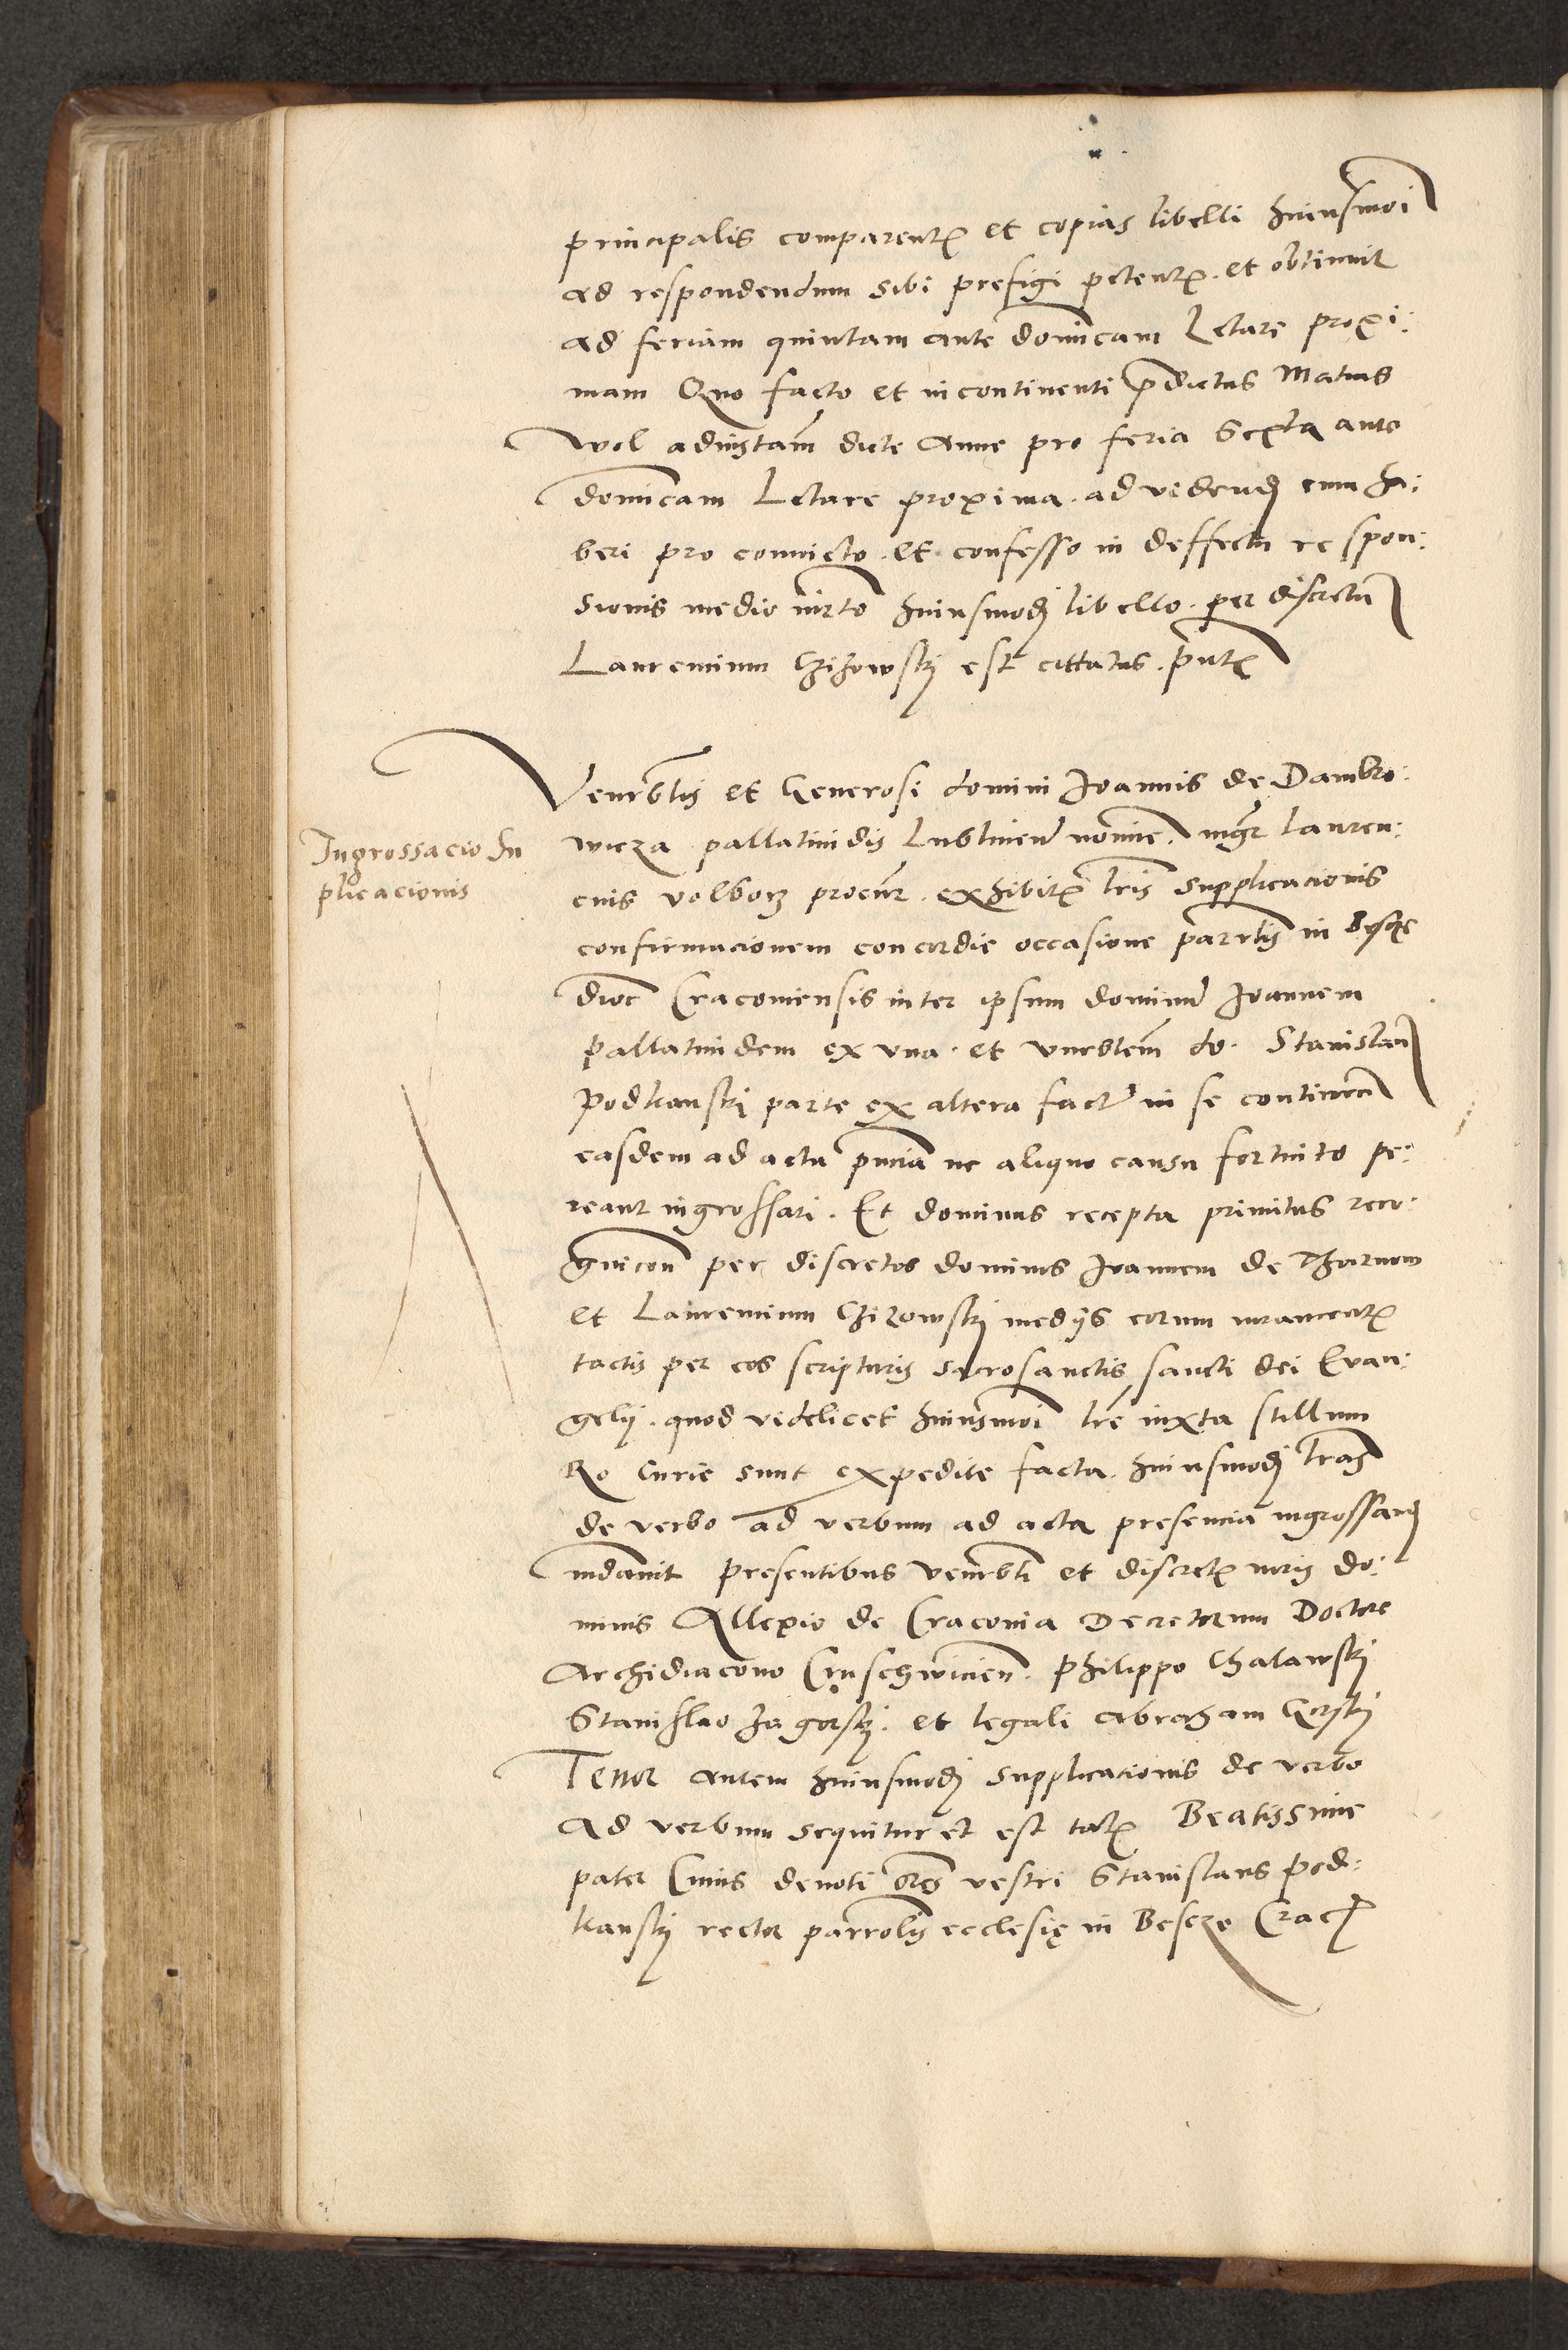 principalis comparentis et copias libelli huiusmoi
ad respondendum sibi prefigi petentis. et obtinuit
ad feriam quintam ante domicam Letare proxi:
mam Quo facto et incontinenti pdictus Matias
Wol adinstam dicte Anne pro feria Sexta ante
domicam Letare proxima. ad videndum eum ha:
beri pro convicto. et confesso in deffectu respon:
sionis medio iurto huiusmodi libello. per discretu
Laurencium Chizowsky est cittatus. pntis
Venerblis et Generosi domini Joannis de Dambro:
wicza pallatinidis Lublinen nomine. mgr Lauren:
cius volborz procur. exhibitis lris supplicacionis
Ingrossacio Su
plicacionis
confirmacionem concordie occasione parrlis in
dioc Cracoviensis inter ipsum dominum Joannem
pallatinidem ex una. et venerblem do. Stanislau
Podkansky parte ex altera fact in se continen
easdem ad acta pncia ne aliquo causu fortuito pe:
reant ingrossari. Et dominus recepta primitus reco:
gnicon per discretos dominos Joannem de Tharnow
et Laurencium Chizowsky medijs eorum iuramentis
tactis per eos scripturis sacrosanctis sancti dei Evan:
gelij. quod videlicet huiusmoi lre iuxta stillum
Ro Curie sunt expedite facta. huiusmodi lras
de verbo ad verbum ad acta presencia ingrossari
mdavit presentibus venerbli et discretis viris do:
minis Allexio de Cracovia Decretorum Doctore
Archidiacono Cruschwicien. Philippo Chalawsky
Stanislao Zagorsky. et legali Abraham Gorsky
Tenor autem huiusmodi supplicationis de verbo
Ad verbum sequitur et est talis Beatissime
pater Cuius devoti ores vestri Stanislaus Pod:
kansky rector parrolis ecclesię in Bescze Crac